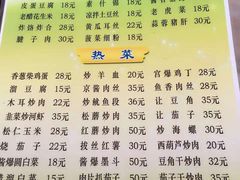 皮蛋豆腐 18元 素什锦 18元
老醋花生米 18元 凉拌土豆丝 18元 老虎菜 18元
炸烙炸合 28元 黄瓜耳丝 22元 蒜蓉猪肝 30元
腱子肉 30元 菠菜细粉 18元
热菜
香葱柴鸡蛋 28元 炒羊血 20元 官爆鸡丁 28元
溜豆腐 15元 京酱肉丝 35元 鱼香肉丝 28元
木耳炒肉 22元 炒鱿鱼段 36元 让豆角 35元
韭菜炒河虾 35元 红蘑炒肉 50元 让茄子 30元
松仁玉米 30元 红蘑土豆片 50元 炒海螺 30元
烧茄子 22元 拔丝红薯 30元 西葫芦炒肉 20元
酱爆圆白菜 18元 酱爆墨斗 50元 豆角干炒肉 32元
肉片扒茄子 茄子干炒肉 32元